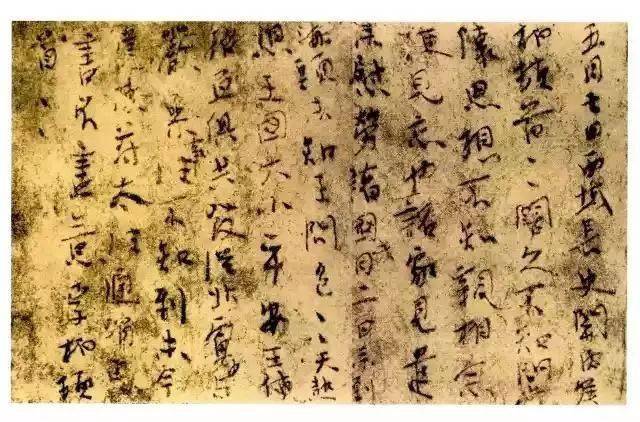 五月七日西域長史關内侯
柏頓首々闊久不知問
懷思想不知親相念
便見忘也詔家見遣
来慰勞諸國月二日来到
海頭未知王問邑々天熱
想王國大小平安王使
俱共發從北虜
嚴參事往不知到未今
遣使苻太往通消息
書不盡意李柏頓
首々